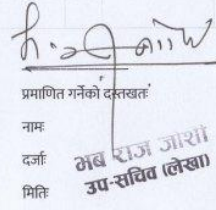 प्रमाणित गर्नेको दस्तखतः
नामः
दर्जाः
मितिः
भब राज जोशी
उप-सचिव (लेखा)